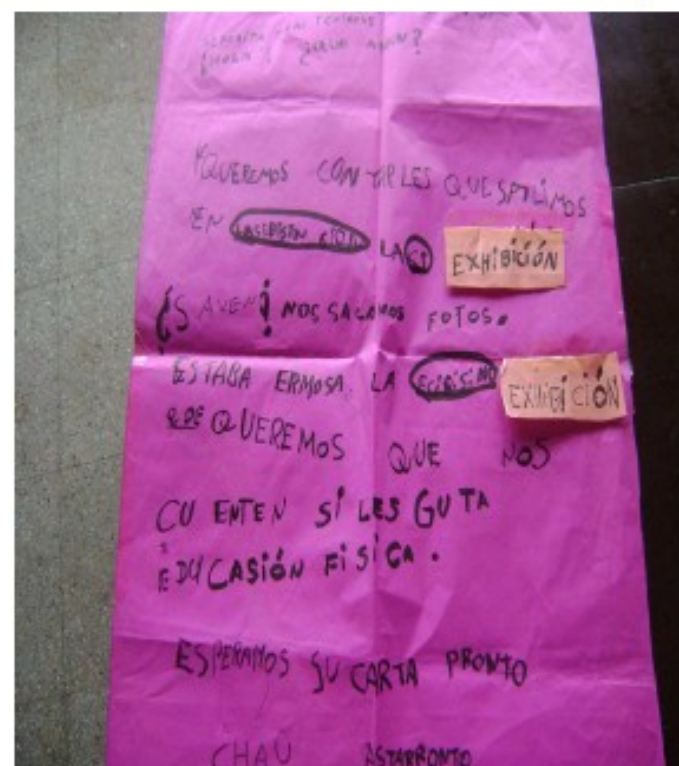 ¡HOLA! ¿QUÉ
QUEREMOS CONTARLES QUE SALIMOS
EN LA EXHIBICIÓN
¿SAVEN? NOS SACAMOS FOTOS.
ESTABA ERMOSA LA EXHIBICIÓN
QUEREMOS QUE NOS
CUENTEN SI LES GUTA
EDUCASIÓN FISICA.
ESPERAMOS SU CARTA PRONTO
CHAU ASTAPRONTO